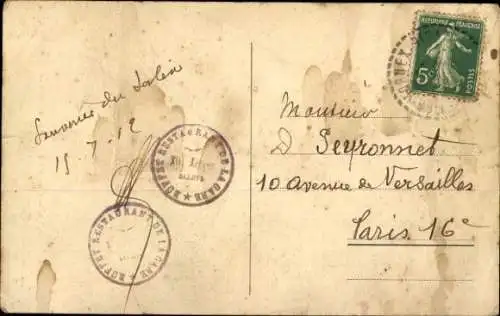 Souvenir du Salin
15 7 12
BUFFET RESTAURANT DE LA GARE
BUFFET RESTAURANT DE LA GARE
REPUBLIQUE FRANÇAISE
5c
POSTES
Monsieur
D Peyronnet
10 avenue de Versailles
Paris 16e